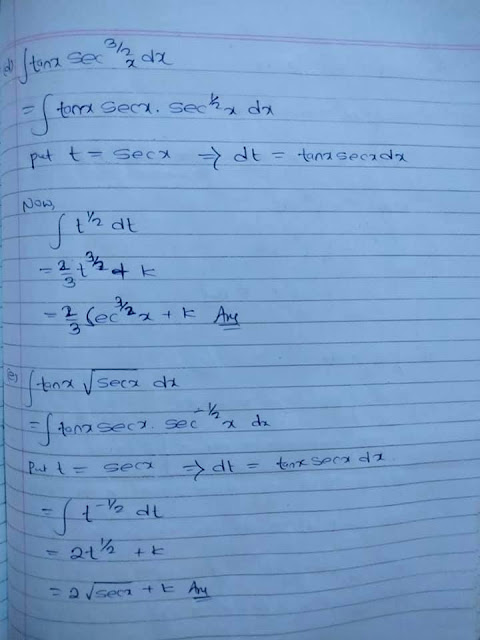 (d) ∫tanx sec^3/2 x dx
= ∫ tanx secx . sec^1/2 x dx
put t = secx ⇒ dt = tanx secx dx
Now,
∫ t^1/2 dt
= 2/3 t^3/2 + k
= 2/3 sec^3/2 x + k Ans
(e) ∫tanx √secx dx
= ∫ tanx secx . sec^-1/2 x dx
Put t = secx ⇒ dt = tanx secx dx.
= ∫ t^-1/2 dt
= 2t^1/2 + k
= 2√secx + k Ans